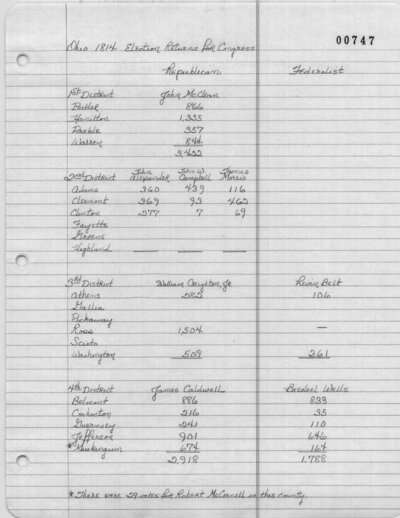 00747
Ohio 1814 Election Returns for Congress
Republican Federalist
1st District John McClean
Butler 866
Hamilton 1,355
Preble 357
Warren 844
3,422
2nd District John Alexander John W. Campbell Thomas Morris
Adams 360 439 116
Clermont 369 93 462
Clinton 277 7 69
Fayette
Greene
Highland
3rd District William Creighton, Jr. Leven Belt
Athens 282 106
Gallia
Pickaway
Ross 1,504 —
Scioto
Washington 509 361
4th District James Caldwell Bezaleel Wells
Belmont 886 833
Coshocton 216 35
Guernsey 241 110
Jefferson 901 646
*Muskingum 674 164
2,918 1,788
*There were 29 votes for Robert McConnell in this county.